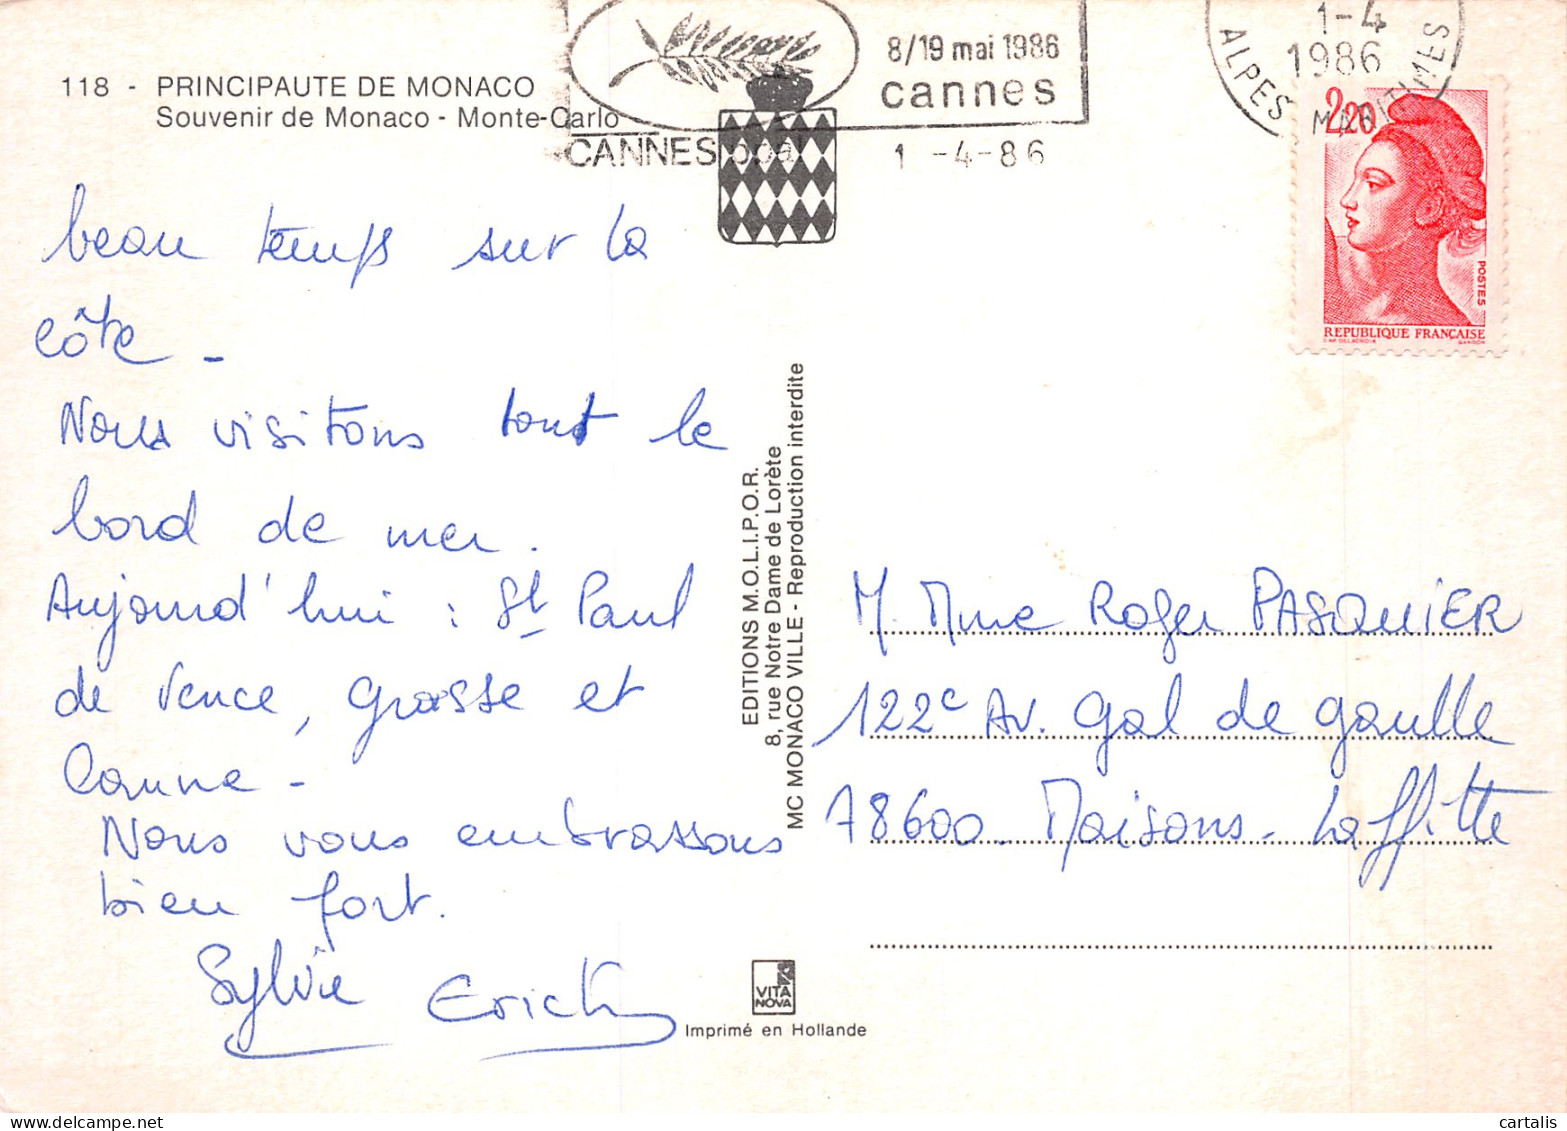 118 - PRINCIPAUTE DE MONACO
Souvenir de Monaco - Monte-Carlo
8/19 mai 1986
cannes
CANNES ppal
1 -4-86
1-4
1986
ALPES MARITIMES
2,20
POSTES
REPUBLIQUE FRANÇAISE
D'AP. DELACROIX GANDON
beau temps sur la
côte -
Nous visitons tout le
bord de mer.
Aujourd'hui : St Paul
de Vence, Grasse et
Canne -
Nous vous embrassons
bien fort.
Sylvie Erick
EDITIONS M.O.L.I.P.O.R.
8, rue Notre Dame de Lorète
MC MONACO VILLE - Reproduction interdite
M. Mme Roger PASQUIER
122c Av. Gal de Gaulle
78600. Maisons-Laffitte
VITA
NOVA
Imprimé en Hollande
cartalis